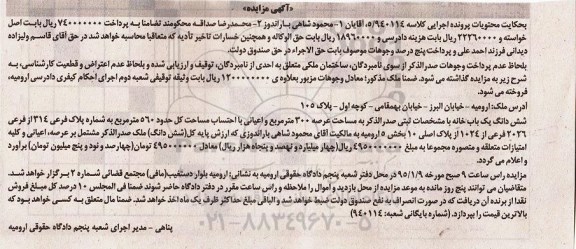 «آگهی مزایده»
بحکایت محتویات پرونده اجرایی کلاسه ۵/۹۴۰۱۱۴، آقایان ۱- محمود شاهی باراندوز ۲- محمدرضا صداقه محکومند تضامناً به پرداخت ۷۴۰۰۰۰۰۰۰ ریال بابت اصل
خواسته و ۲۲۲۶۰۰۰۰ ریال بابت هزینه دادرسی و ۱۸۹۶۰۰۰۰ ریال بابت حق الوکاله و همچنین خسارات تاخیر تأدیه که متعاقبا محاسبه خواهد شد در حق آقای قاسم ولیزاده
دیدانی فرزند احمد علی و پرداخت پنج درصد وجوهات موصوف بابت حق الاجراء در حق صندوق دولت.
بلحاظ عدم پرداخت وجوهات صدرالذکر از سوی نامبردگان، ساختمان ملکی متعلق به احدی از نامبردگان، توقیف و ارزیابی شده و بلحاظ عدم اعتراض و قطعیت کارشناسی، به
شرح زیر به مزایده گذاشته می شود. ضمناً ملک مذکور؛ معادل وجوهات مزبور بعلاوه ی ۱۲۰۰۰۰۰۰۰۰ ریال بابت وثیقه توقیفی شعبه دوم اجرای احکام کیفری دادرسی ارومیه،
فروخته می شود.
آدرس ملک: ارومیه - خیابان البرز - خیابان بهمقامی - کوچه اول - پلاک ۱۰۵
شش دانگ یک باب خانه با مشخصات ثبتی صدرالذکر به مساحت عرصه ۳۰۰ مترمربع و اعیانی با احتساب مساحت کل حدود ۵۶۰ مترمربع به شماره پلاک فرعی ۳۱۴ از فرعی
۲۰۲۶ فرعی از ۱۰۲۴ از پلاک اصلی ۱۰ بخش ۵ ارومیه به مالکیت آقای محمود شاهی باراندوزی که ارزش پایه کل(شش دانگ) ملک صدرالذکر مشتمل بر عرصه، اعیانی و کلیه
امتیازات متعلقه و متصوره مجموعا به مبلغ ۴۹۵۰۰۰۰۰۰۰ ریال(چهار میلیارد و نهصد و پنجاه هزار ریال) معادل ۴۹۵۰۰۰۰۰۰ تومان(چهارصد و نود و پنج میلیون تومان) برآورد
و اعلام می گردد.
مزایده راس ساعت ۹ صبح مورخه ۹۵/۱/۹ در محل دفتر شعبه پنجم دادگاه حقوقی ارومیه به نشانی: ارومیه بلوار دستغیب(مافی) مجتمع قضائی شماره ۲ برگزار خواهد شد.
متقاضیان می توانند پنج روز مانده به موعد مزایده از محل بازدید و آموال را ملاحظه و راس ساعت مقرر در دفتر دادگاه حاضر شوند ضمنا فی المجلس ۱۰ درصد کل مبلغ فروش
نقدا از برنده آن دریافت که در صورت انصراف به نفع صندوق دولت ضبط خواهد شد و الباقی مبلغ حداکثر ظرف یک ماه اخذ خواهد شد. ضمنا مال متعلق به کسی خواهد بود که
بالاترین قیمت را بپردازد. (شماره بایگانی شعبه: ۹۴۰۱۱۴)
پناهی - مدیر اجرای شعبه پنجم دادگاه حقوقی ارومیه
۰۲۱-۸۸۳۴۹۶۷۰-۵